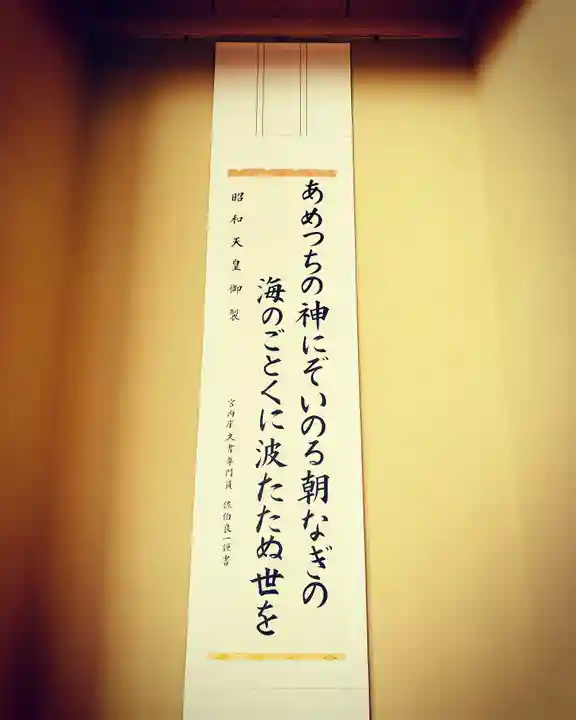 あめつちの神にぞいのる朝なぎの
海のごとくに波たたぬ世を
昭和天皇御製
宮内庁文書専門員 佐伯良一謹書